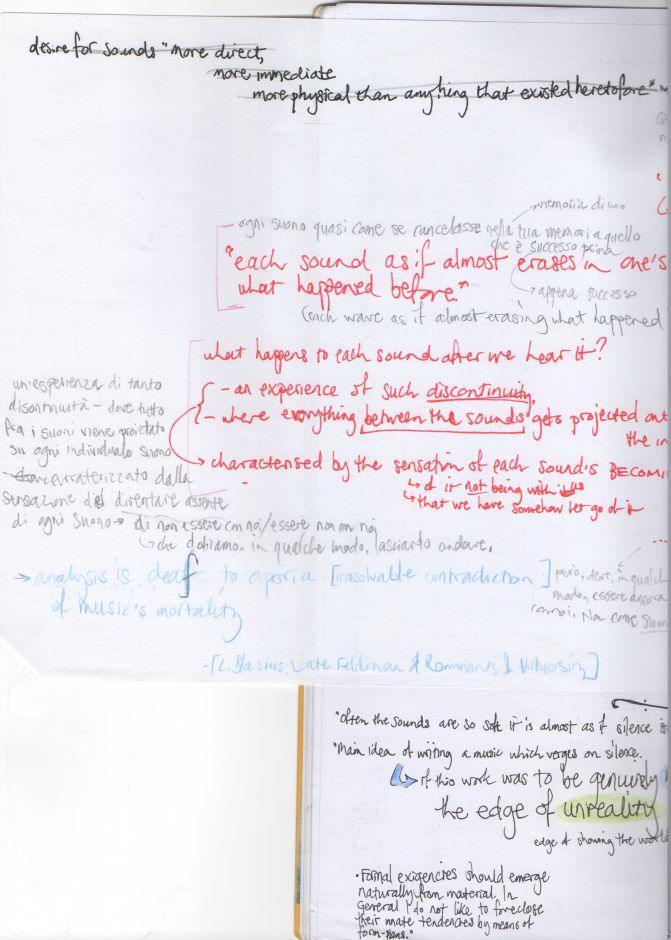 desire for sounds "more direct,
more immediate
more physical than anything that existed heretofore"
memoria di uno
ogni suono quasi come se cancelasse nella tua memoria quello
che è successo prima
"each sound as if almost erases in one's
what happened before."
appena successo
(each wave as if almost erasing what happened
what happens to each sound after we hear it?
- an experience of such discontinuity,
- where everything between the sounds gets projected out
the in
characterised by the sensation of each sound's BECOMI
of it not being with us
that we have somehow let go of it
un'esperienza di tanto
discontinuità - dove tutto
fra i suoni viene proietato
su ogni individuale suono
caratterizzato dalla
sensazione di diventare assente
di ogni suono di non essere con noi/essere non con noi
che dobiamo, in qualche modo, lasciarlo andare,
→ analysis is deaf to aporia [irresolvable contradiction]
of music's mortality
però, deve, in qualch
modo, essere ancora
con noi. Non come suon
- [L. Blasius, Late Feldman & Remnants of Virtuosity]
"Often the sounds are so soft it is almost as if silence it
"Main idea of writing a music which verges on silence.
if this work was to be genuinely
the edge of unreality
edge of showing the world
• Formal exigencies should emerge
naturally from material. In
General I do not like to foreclose
their innate tendencies by means of
form-plans."